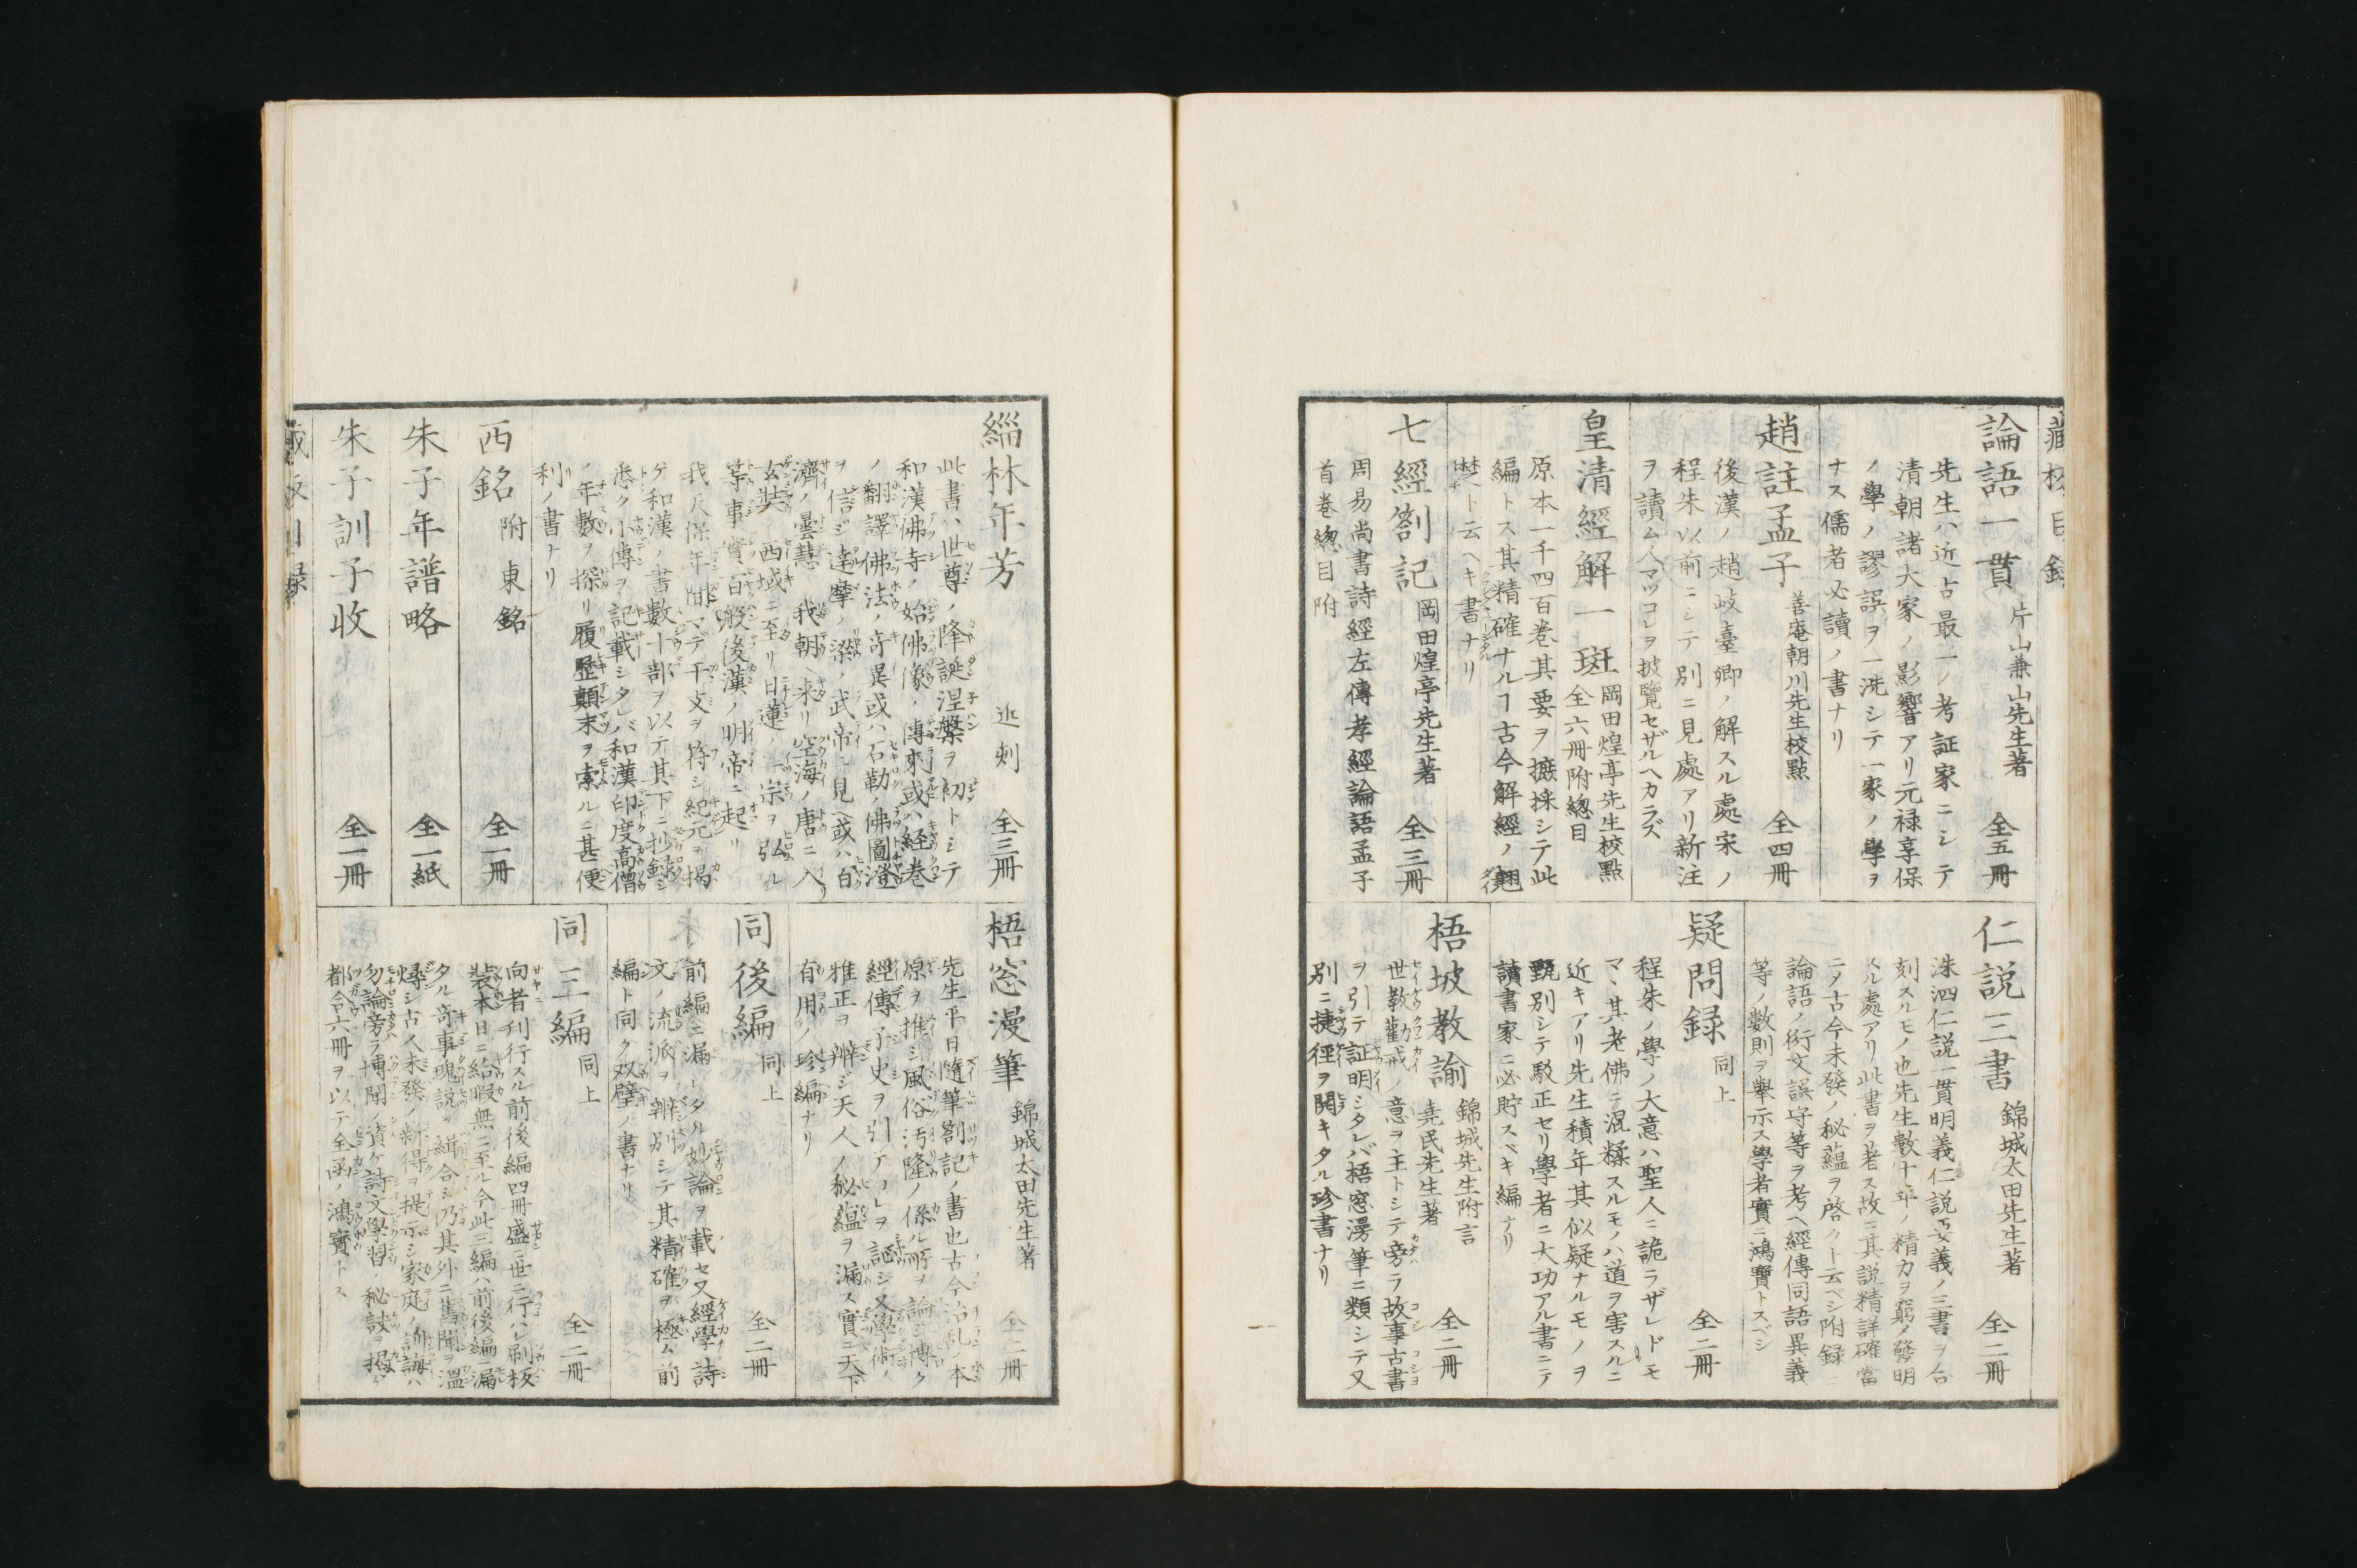 藏板目錄
論語一貫 片山兼山先生著 全五冊
先生ハ近古最一ノ考証家ニシテ
清朝諸大家ノ影響アリ元禄享保
ノ學ノ謬誤ヲ一洗シテ一家ノ學ヲ
ナス儒者必讀ノ書ナリ
趙註孟子 善庵朝川先生校點 全四冊
後漢ノ趙岐臺卿ノ解スル處宋ノ
程朱以前ニシテ別ニ見處アリ新注
ヲ讀ム人マツコレヲ披覽セザルヘカラズ
皇清經解一斑 岡田煌亭先生校點 全六冊附總目
原本一千四百巻其要ヲ摭採シテ此
編トス其精確ナルヿ古今解經ノ翹
楚ト云ヘキ書ナリ
七經劄記 岡田煌亭先生著 全三冊
周易尚書詩經左傳孝經論語孟子
首巻總目附
仁説三書 錦城太田先生著 全二冊
洙泗仁説一貫明義仁説要義ノ三書ヲ合
刻スルモノ也先生數十年ノ精力ヲ窮メ發明
スル處アリ此書ヲ著ス故ニ其説精詳確當
ニメ古今未發ノ秘蘊ヲ啓クト云ベシ附録
論語ノ衍文誤守等ヲ考ヘ經傳同語異義
等ノ數則ヲ擧示ス學者實ニ鴻寶トスベシ
疑問録 同上 全二冊
程朱ノ學ノ大意ハ聖人ニ詭ラザレドモ
マヽ其老佛ニ混糅スルモノハ道ヲ害スルニ
近キアリ先生積年其似疑ナルモノヲ
甄別シテ駁正セリ學者ニ大功アル書ニテ
讀書家ニ必貯スベキ編ナリ
梧坡教諭 錦城先生附言 堯民先生著 全二冊
世教勸戒ノ意ヲ主トシテ旁ラ故事古書
ヲ引テ証明シタレバ梧窓漫筆ニ類シテ又
別ニ捷徑ヲ開キタル珍書ナリ
緇林年芳 近刻 全三冊
此書ハ世尊ノ降誕涅槃ヲ初トシテ
和漢佛寺ノ始佛像ノ傳來或ハ經巻
ノ翻譯佛法ノ奇異或ハ石勒ノ佛圖澄
ヲ信ジ達摩ノ梁ノ武帝ニ見ヘ或ハ百
濟ノ曇慧我朝ヘ來リ空海ノ唐ニ入
玄奘ノ西域ニ至リ日蓮ノ一宗ヲ弘ル
等事實百般後漢ノ明帝ニ起リ
我天保年間マデ干支ヲ符シ紀元ヲ揭
ゲ和漢ノ書數十部ヲ以テ其下ニ抄録シ
悉ク小傳ヲ記載シタレバ和漢印度高僧
ノ年數ヲ探リ履歴顛末ヲ索ルニ甚便
利ノ書ナリ
西銘 附東銘 全一冊
朱子年譜略 全一紙
朱子訓子收 全一冊
梧窓漫筆 錦城太田先生著 全二冊
先生平日隨筆劄記ノ書也古今治亂ノ本
原ヲ推シ風俗汚隆ノ係ル所ヲ論シ博ク
經傳子史ヲ引テコレヲ証シ又學術ノ
雅正ヲ辨ジ天人ノ秘蘊ヲ漏ス實ニ天下
有用ノ珍編ナリ
同後編 同上 全二冊
前編ニ漏レタル妙論ヲ載セ又經學詩
文ノ流派ヲ辨別シテ其精確ヲ極ム前
編ト同ク双璧ノ書ナリ
同三編 同上 全二冊
向者刊行スル前後編四冊盛ニ世ニ行ハレ刷板
裝本日ニ給暇無ニ至ル今此三編ハ前後編ニ漏
タル奇事瑰説ヲ緝合シ乃其外ニ舊聞ヲ溫
燖シ古人未發ノ新得ヲ提示シ家庭ノ訓誨ハ
勿論旁ラ博聞ノ資ケ詩文學習ノ秘訣ヲ揭グ
都合六冊ヲ以テ全函ノ鴻寶トス
藏板目録